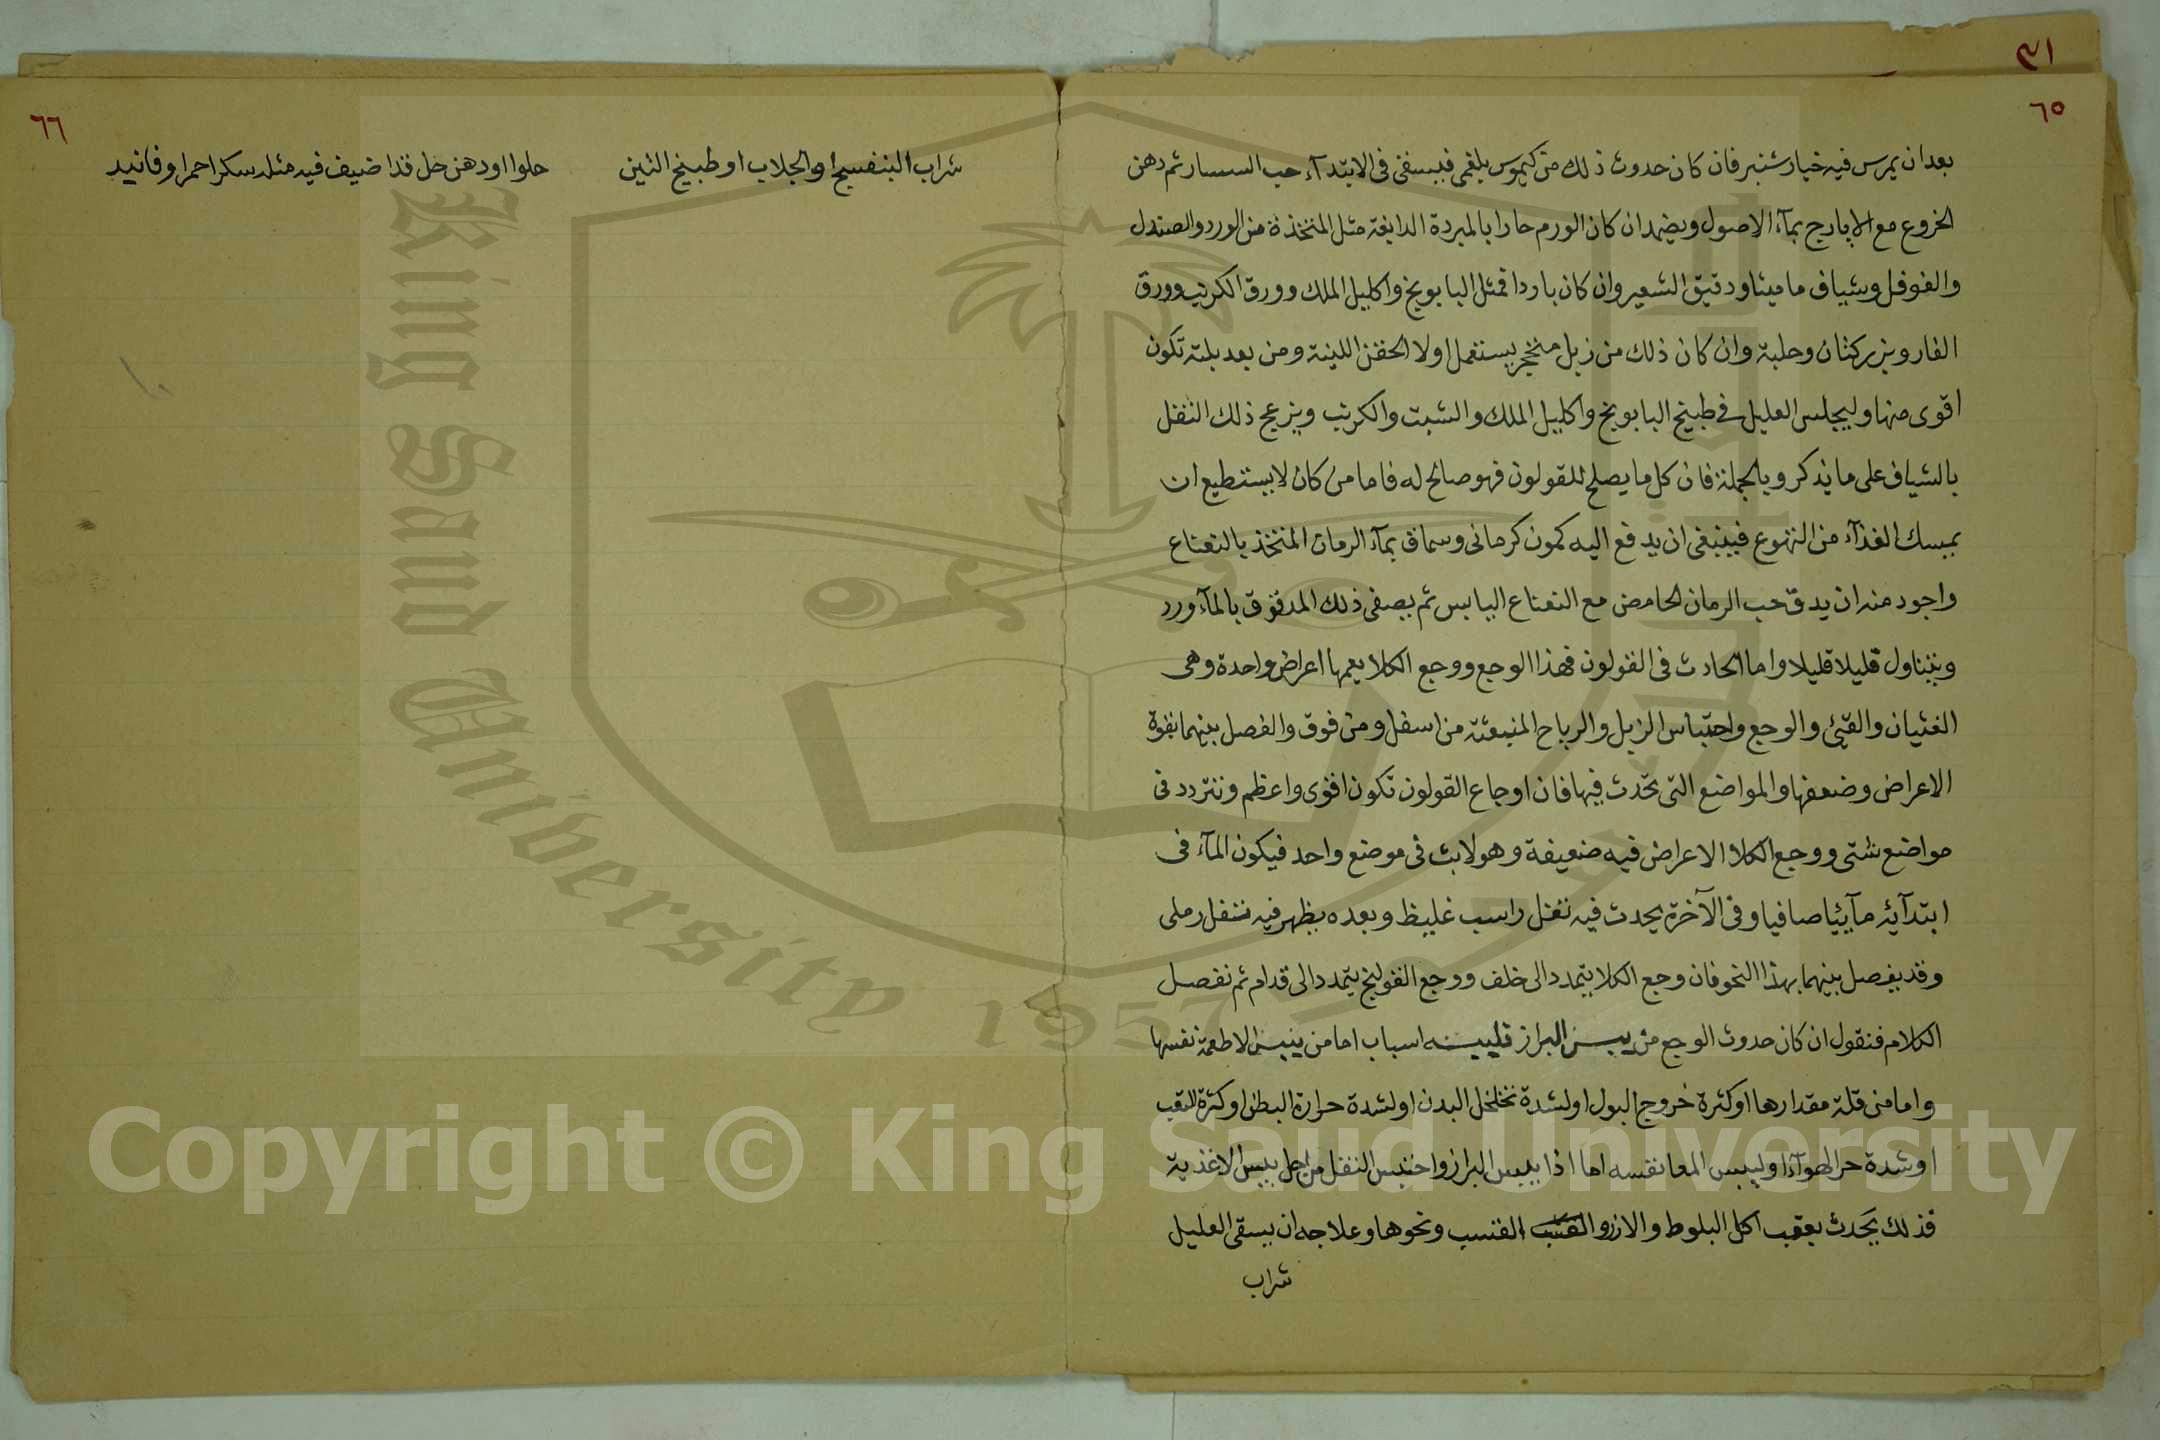 ٣١
٦٥
بعد ان يمرس فيه خيار شنبر فان كان حدوث ذلك من كيموس بلغمى فيسقى فى الابتدآء حب السسار ثم دهن
الخروع مع الايارج بمآء الاصول ويضمد ان كان الورم حارا بالمبردة الدابغة مثل المتخذة من الورد والصندل
والفوفل وشياف ماميثا ودقيق الشعير وان كان باردا فمثل البابونج واكليل الملك وورق الكرنب وورق
الغار وبزر كتان وحلبة وان كان ذلك من زبل متحجر يستعمل اولا الحقن اللينة ومن بعد بلته تكون
اقوى منها وليجلس العليل فى طبيخ البابونج واكليل الملك والشبت والكرنب ويزعج ذلك الثفل
بالشياف على ما يذكر وبالجملة فان كل ما يصلح للقولون فهو صالح له فاما من كان لا يستطيع ان
يمسك الغذآء من التهوع فينبغى ان يدفع اليه كمون كرمانى وسماق بمآء الرمان المتخذ بالنعناع
واجود منه ان يدق حب الرمان الحامض مع النعناع اليابس ثم يصفى ذلك المدقوق بالمآء ورد
ويتناول قليلا قليلا واما الحادث فى القولون فهذا الوجع ووجع الكلا يعمها اعراض واحدة وهى
الغثيان والقيئ والوجع واحتباس الزبل والرياح المنبعثة من اسفل ومن فوق والفصل بينهما بقوة
الاعراض وضعفها والمواضع التى تحدث فيها فان اوجاع القولون تكون اقوى واعظم وتتردد فى
مواضع شتى ووجع الكلا الاعراض فيه ضعيفة وهو لابث فى موضع واحد فيكون المآء فى
ابتدآئه مآئيا صافيا وفى الآخرة يحدث فيه ثفل راسب غليظ وبعده يظهر فيه ثفل رملى
وقد يفصل بينهما بهذا النحو فان وجع الكلا يتمدد الى خلف ووجع القولنج يتمدد الى قدام ثم نفصل
الكلام فنقول ان كان حدوث الوجع من يبس البراز فليبسه اسباب اما من يبس الاطعمة نفسها
واما من قلة مقدارها او كثرة خروج البول او لشدة تخلخل البدن او لشدة حرارة البطن او كثرة التعب
او شدة حر الهوآء او ليبس المعا نفسه اما اذا يبس البراز واحتبس الثفل من اجل يبس الاغذية
فذلك يحدث بعقب اكل البلوط والارز و القسب ونحوها وعلاجه ان يسقى العليل
شراب
٦٦
شراب البنفسج او الجلاب او طبيخ التين
حلوا او دهن خل قدا ضيف فيه مثله سكر احمر او فانيد
King Saud University 1957
Copyright © King Saud University